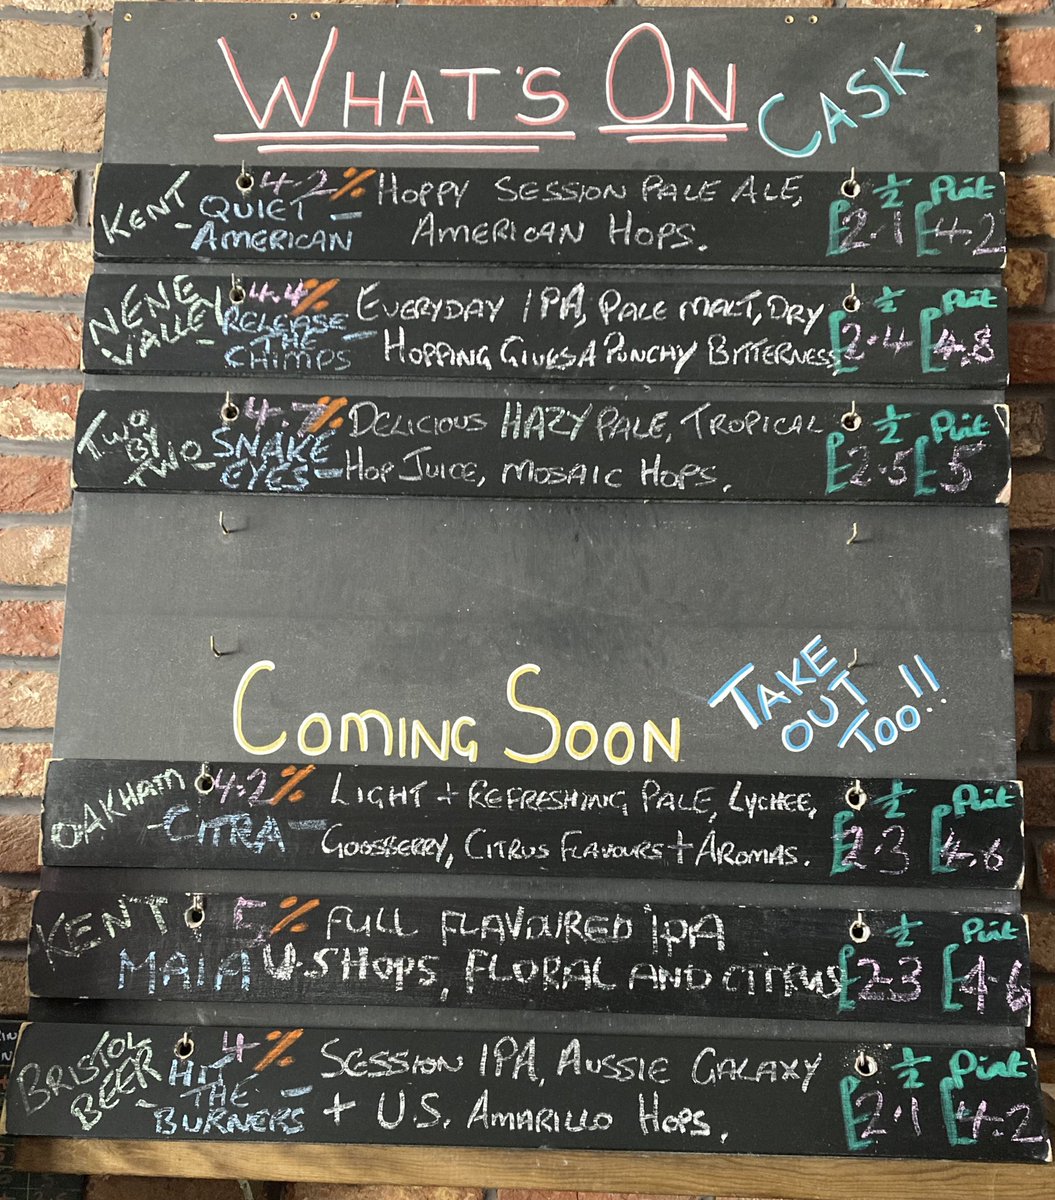 WHAT'S ON CASK
KENT 4.2% HOPPY SESSION PALE ALE, ½ Pint
QUIET - AMERICAN HOPS. £2.1 £4.2
- AMERICAN
NENE 4.4% EVERYDAY IPA, PALE MALT, DRY ½ Pint
VALLEY - RELEASE THE - HOPPING GIVES A PUNCHY BITTERNESS £2.4 £4.8
CHIMPS
TWO BY TWO - 4.7% DELICIOUS HAZY PALE, TROPICAL ½ Pint
SNAKE EYES - HOP JUICE, MOSAIC HOPS. £2.5 £5
COMING SOON TAKE OUT TOO!!
OAKHAM 4.2% LIGHT + REFRESHING PALE, LYCHEE, ½ Pint
- CITRA - GOOSBERRY, CITRUS FLAVOURS + AROMAS. £2.3 £4.6
KENT 5% FULL FLAVOURED IPA ½ Pint
MAIA U.S HOPS, FLORAL AND CITRUS £2.3 £4.6
BRISTOL BEER - 4% SESSION IPA, AUSSIE GALAXY ½ Pint
HIT THE - + U.S. AMARILLO HOPS. £2.1 £4.2
BURNERS